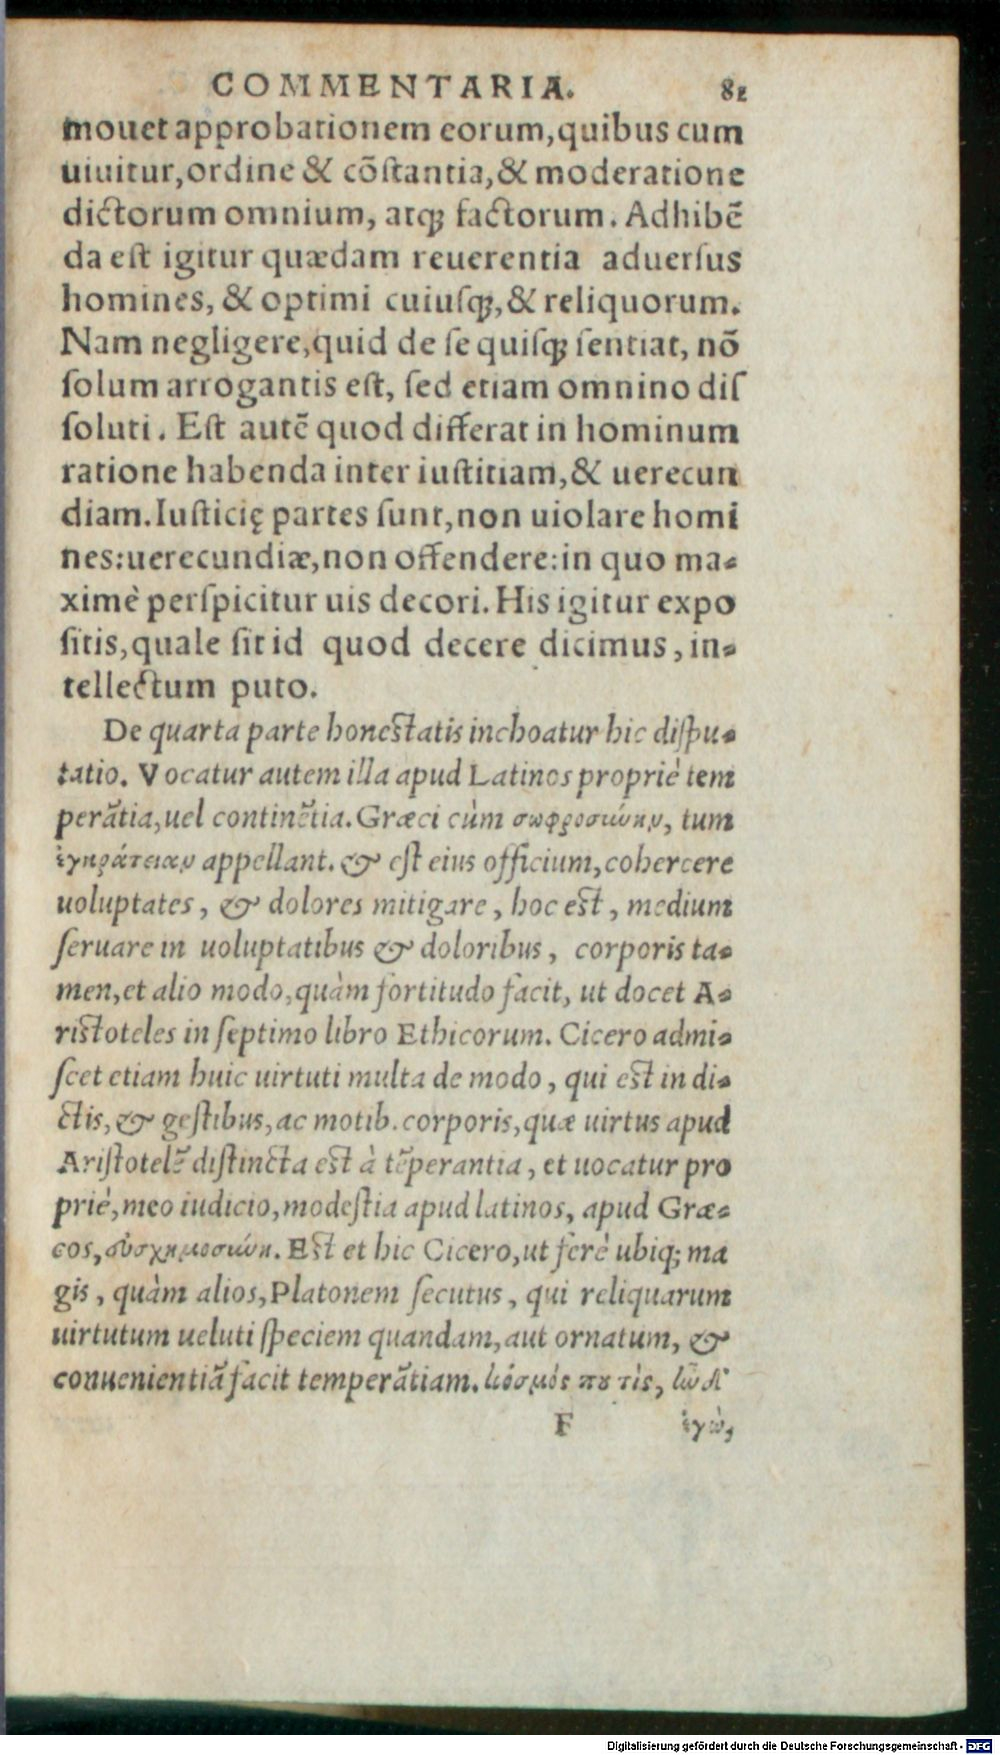 COMMENTARIA. 81
mouet approbationem eorum,quibus cum
uiuitur,ordine & cõstantia,& moderatione
dictorum omnium, atq; factorum. Adhibẽ
da est igitur quædam reuerentia aduersus
homines, & optimi cuiusq;,& reliquorum.
Nam negligere,quid de se quisq; sentiat, nõ
solum arrogantis est, sed etiam omnino dis
soluti. Est autẽ quod differat in hominum
ratione habenda inter iustitiam,& uerecun
diam.Iusticię partes sunt,non uiolare homi
nes:uerecundiæ,non offendere:in quo ma-
ximè perspicitur uis decori. His igitur expo
sitis,quale sit id quod decere dicimus, in-
tellectum puto.
De quarta parte honestatis inchoatur hic dispu-
tatio. Vocatur autem illa apud Latinos propriè tem
perãtia,uel continẽtia. Græci cùm σωφροσύνην, tum
ἐγκράτειαν appellant. & est eius officium,cohercere
uoluptates, & dolores mitigare, hoc est, medium
seruare in uoluptatibus & doloribus, corporis ta-
men,et alio modo,quàm fortitudo facit, ut docet A-
ristoteles in septimo libro Ethicorum. Cicero admi-
scet etiam huic uirtuti multa de modo, qui est in di-
ctis,& gestibus,ac motib. corporis,quæ uirtus apud
Aristotelẽ distincta est à tẽperantia, et uocatur pro
priè,meo iudicio,modestia apud latinos, apud Græ-
cos,εὐσχημοσύνη. Est et hic Cicero,ut ferè ubiq; ma
gis, quàm alios,Platonem secutus, qui reliquarum
uirtutum ueluti speciem quandam,aut ornatum, &
conuenientiã facit temperãtiam. κόσμός που τὶς, ἦν δ'
F ἐγὼ,
Digitalisierung gefördert durch die Deutsche Forschungsgemeinschaft - DFG